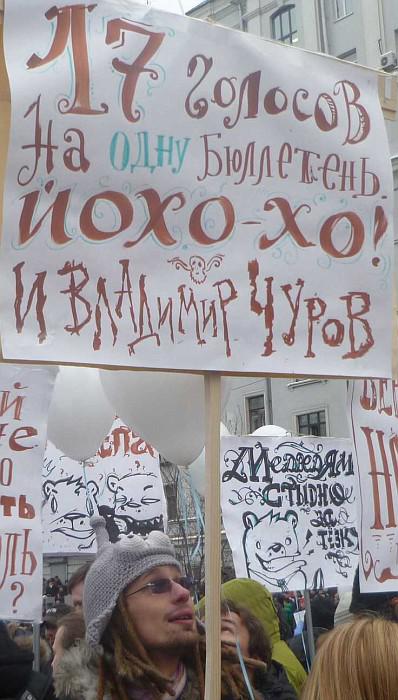 17 голосов
На одну Бюллетень
йохо-хо!
И Владимир Чуров
Медведям
стыдно
за